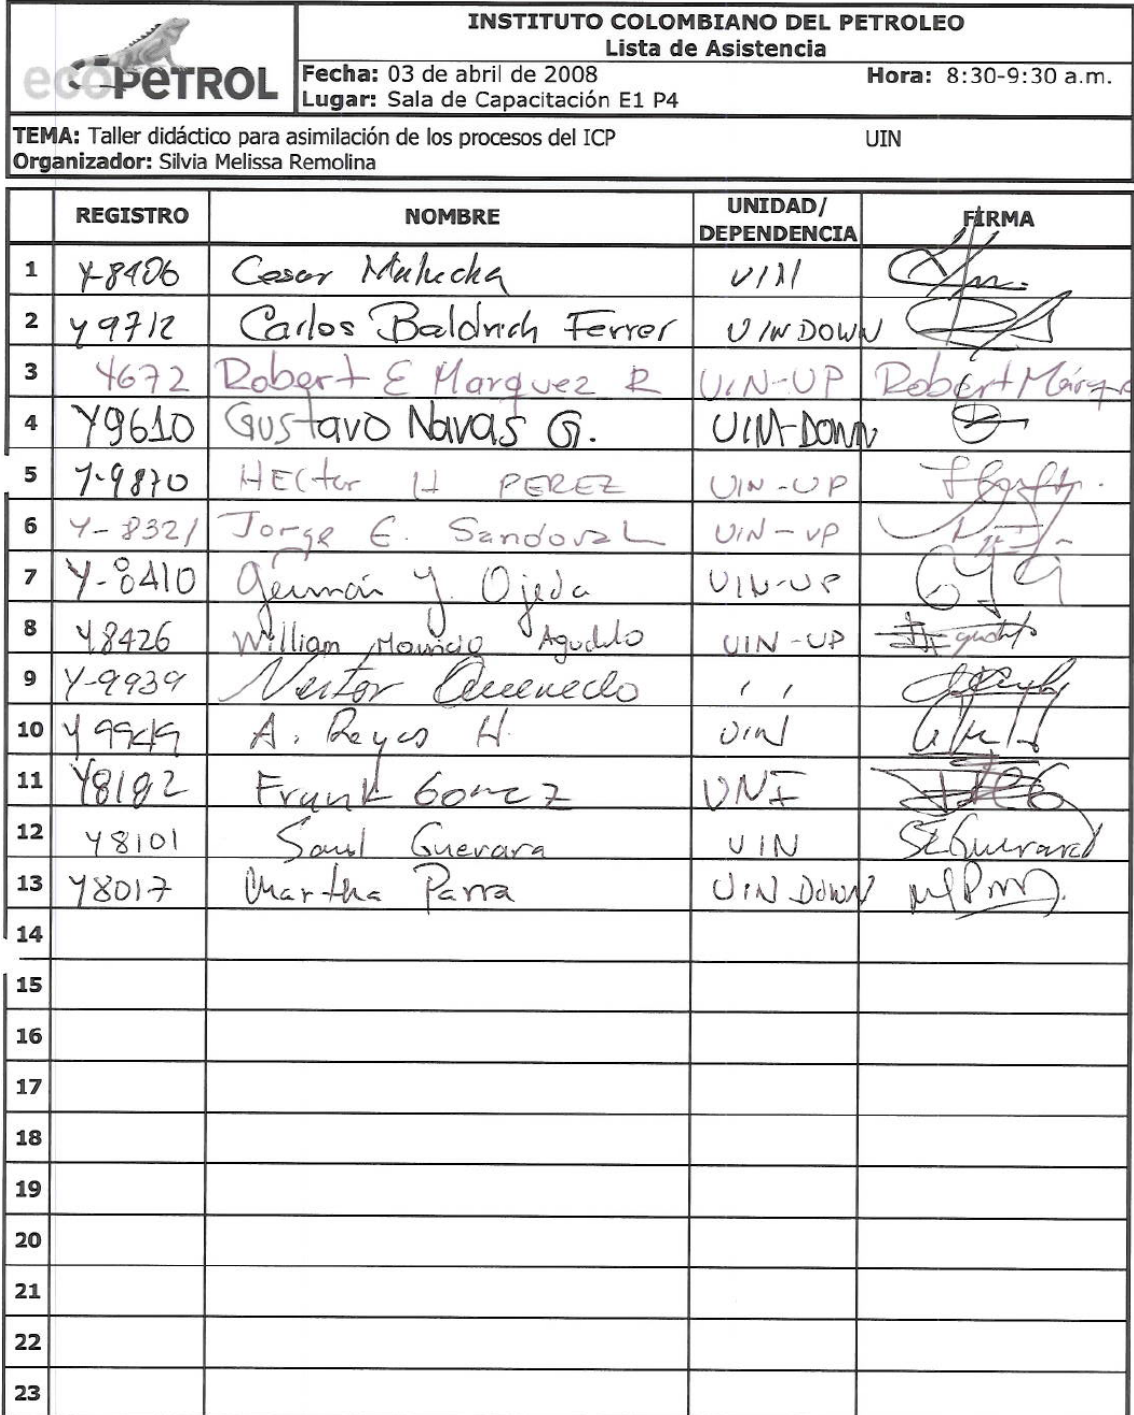 INSTITUTO COLOMBIANO DEL PETROLEO
Lista de Asistencia
ecoPETROL
Fecha: 03 de abril de 2008 Hora: 8:30-9:30 a.m.
Lugar: Sala de Capacitación E1 P4
TEMA: Taller didáctico para asimilación de los procesos del ICP UIN
Organizador: Silvia Melissa Remolina
REGISTRO NOMBRE UNIDAD/ DEPENDENCIA FIRMA
1 Y-8406 Cesar UIN
2 Y9712 Carlos Baldrich Ferrer UIN DOWN
3 4672 Robert E Marquez R UIN-UP Robert Márquez
4 Y9610 Gustavo Navas G. UIN-DOWN
5 Y-9870 HEctor H PEREZ UIN-UP
6 Y-8321 Jorge E. Sandoval UIN-UP
7 Y-8410 Germán Y. Ojeda UIN-UP
8 Y8426 William Mauricio Agudelo UIN-UP
9 Y-9939 Nestor ,,
10 A. Reyes H. UIN
11 Y8182 Frank Gomez UNI
12 Y8101 Saul Guevara UIN
13 Y8017 Martha Parra UIN DOWN
14
15
16
17
18
19
20
21
22
23